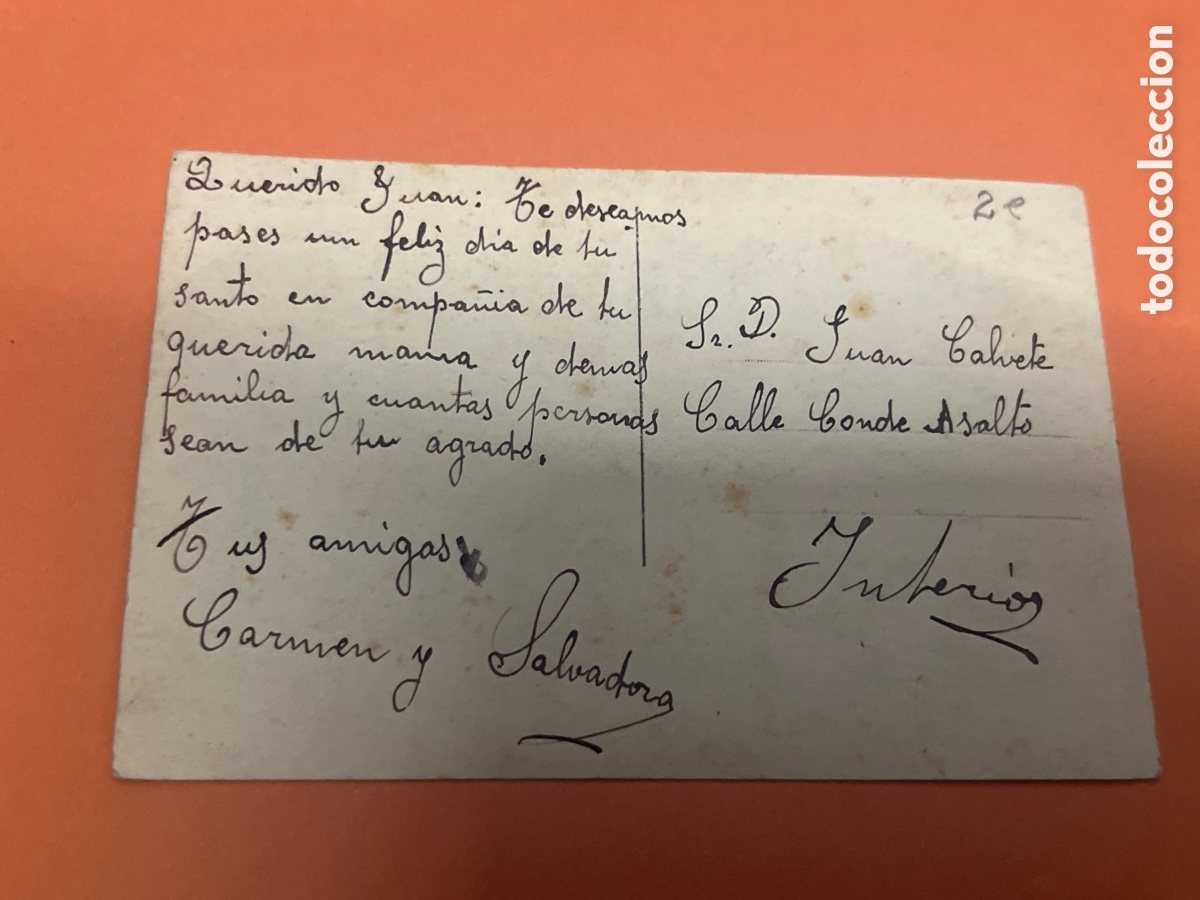 Querido Juan: Te deseamos
pases un feliz dia de tu
santo en compañia de tu
querida mama y demas
familia y cuantas personas
sean de tu agrado.
Tus amigas
Carmen y Salvadora
2€
Sr. D. Juan Calvete
Calle Conde Asalto
Interior
todocoleccion